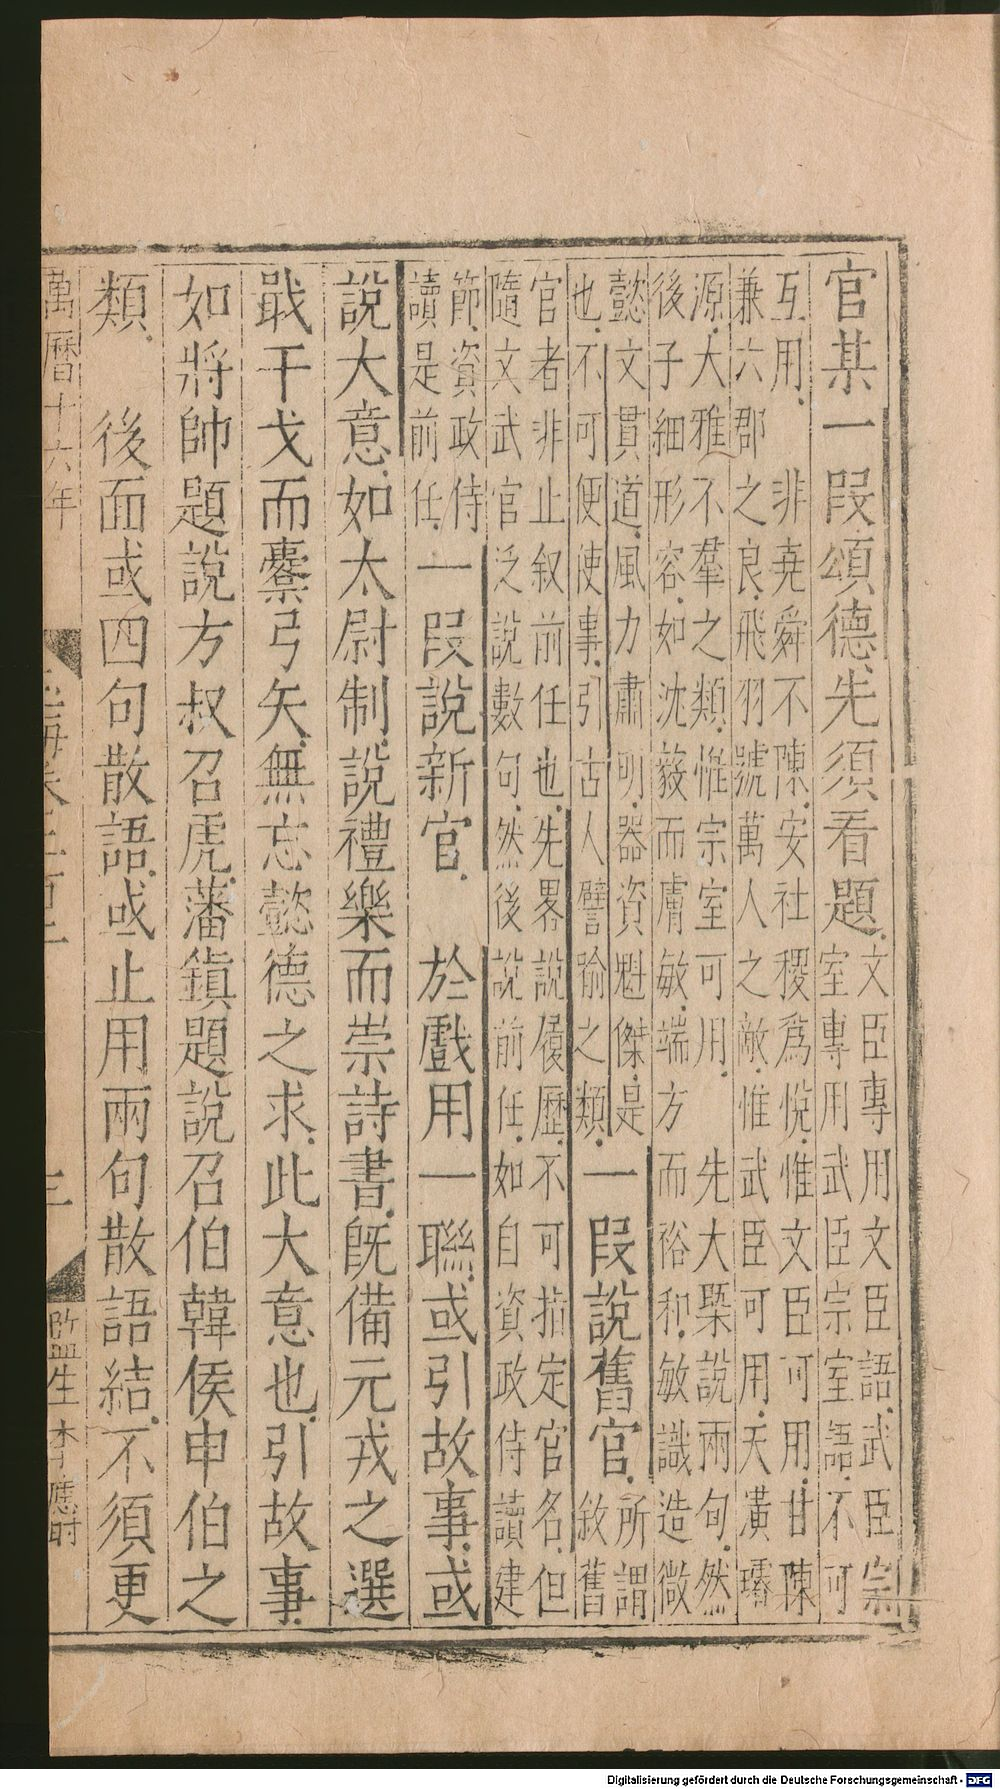 官某一段頌德先須看題文臣專用文臣語武臣宗
室專用武臣宗室語不可
互用　非堯舜不陳安社稷爲悅惟文臣可用甘陳
兼六郡之良飛羽號萬人之敵惟武臣可用天潢璿
源大雅不羣之類惟宗室可用　先大槩說兩句然
後子細形容如沈毅而膚敏端方而裕和敏識造微
懿文貫道風力肅明器資魁傑是
也不可便使事引古人譬喻之類
一段說舊官所謂
敘舊
官者非止叙前任也先畧說履歷不可指定官名但
隨文武官泛說數句然後說前任如自資政侍讀建
節資政侍
讀是前任
一段說新官　於戲用一聯或引故事或
說大意如太尉制說禮樂而崇詩書旣備元戎之選
戢干戈而櫜弓矢無忘懿德之求此大意也引故事
如將帥題說方叔召虎藩鎮題說召伯韓侯申伯之
類　後面或四句散語或止用兩句散語結不須更
萬曆十六年
三
監生李應時
Digitalisierung gefördert durch die Deutsche Forschungsgemeinschaft - DFG